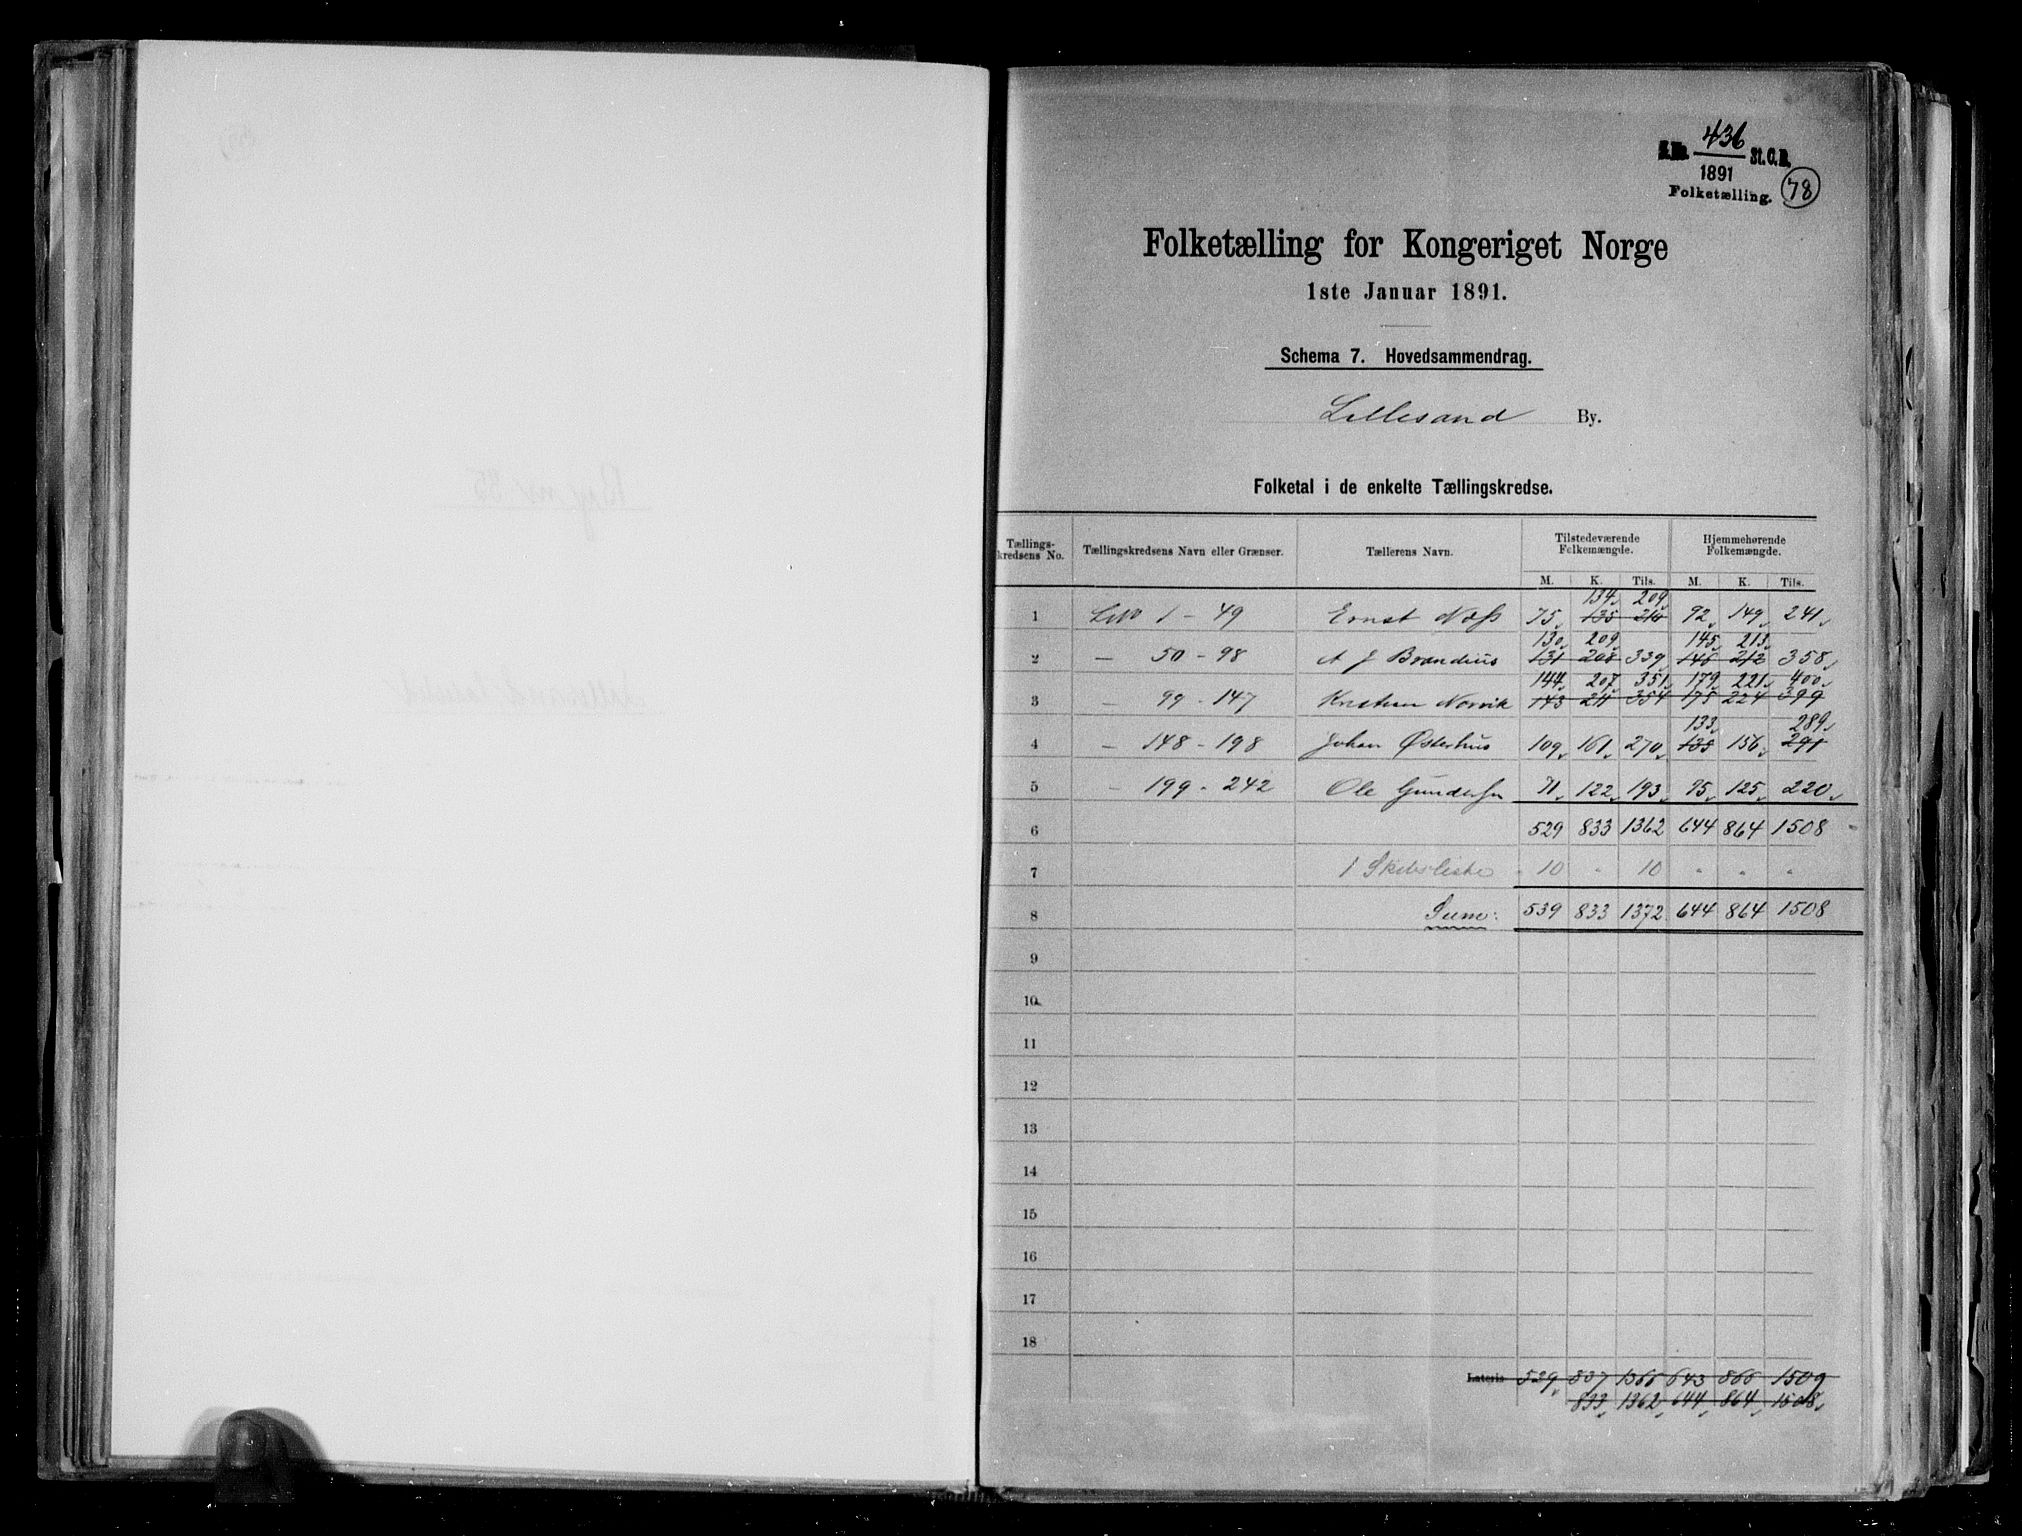 J. No. 436 St. C. B.
1891
Folketælling. 78
Folketælling for Kongeriget Norge
1ste Januar 1891.
Schema 7. Hovedsammendrag.
Lillesand By.
Folketal i de enkelte Tællingskredse.
Tællingskredsens No. Tællingskredsens Navn eller Grænser. Tællerens Navn. Tilstedeværende Folkemængde. Hjemmehørende Folkemængde.
M. K. Tils. M. K. Tils.
134 209
1 1 - 49 Ernst Næss 75 135 210 92 149 241
130 209 145 213
2 — 50 - 98 A J Brandius 131 208 339 146 212 358
144 207 351 179 221 400
3 — 99 - 147 Kristian Norvik 143 211 354 175 224 399
133 289
4 — 148 - 198 Johan Østerhus 109 161 270 135 156 291
5 — 199 - 242 Ole Gundersen 71 122 193 95 125 220
6 529 833 1362 644 864 1508
7 1 Skibsliste " 10 " 10 " " "
8 Sum: 539 833 1372 644 864 1508
9
10
11
12
13
14
15
16
17
18
Lateris 529 837 1366 643 866 1509
833 1362 644 864 1508
By no 35
Lillesand Ladested